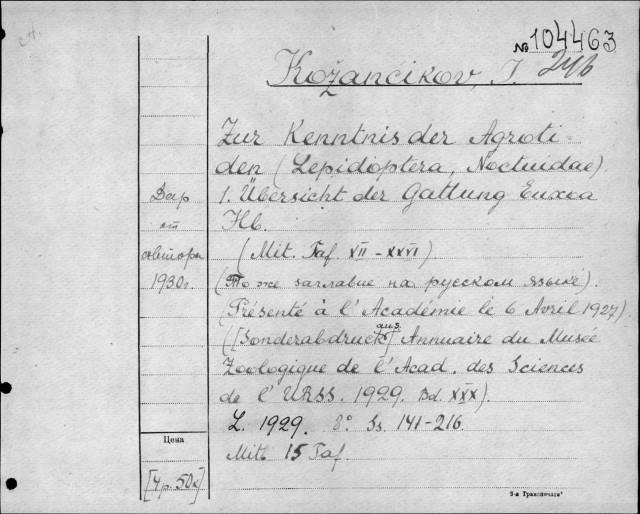 № 104463
Kožančikov, I. 246
Zur Kenntnis der Agroti-
den (Lepidoptera, Noctuidae)
1. Übersicht der Gattung Euxoa
Hb.
(Mit. Taf XII - XXVI)
(То же заглавие на русском языке).
(Présenté à l'Académie le 6 Avril 1927)
([Sonderabdruck aus] Annuaire du Musée
Zoologique de l'Acad. des Sciences
de l'URSS. 1929. Bd. XXX).
L. 1929. 8° Ss. 141-216.
Mit 15 Taf.
Дар
от
автора
1930г.
Цена
[4р. 50к]